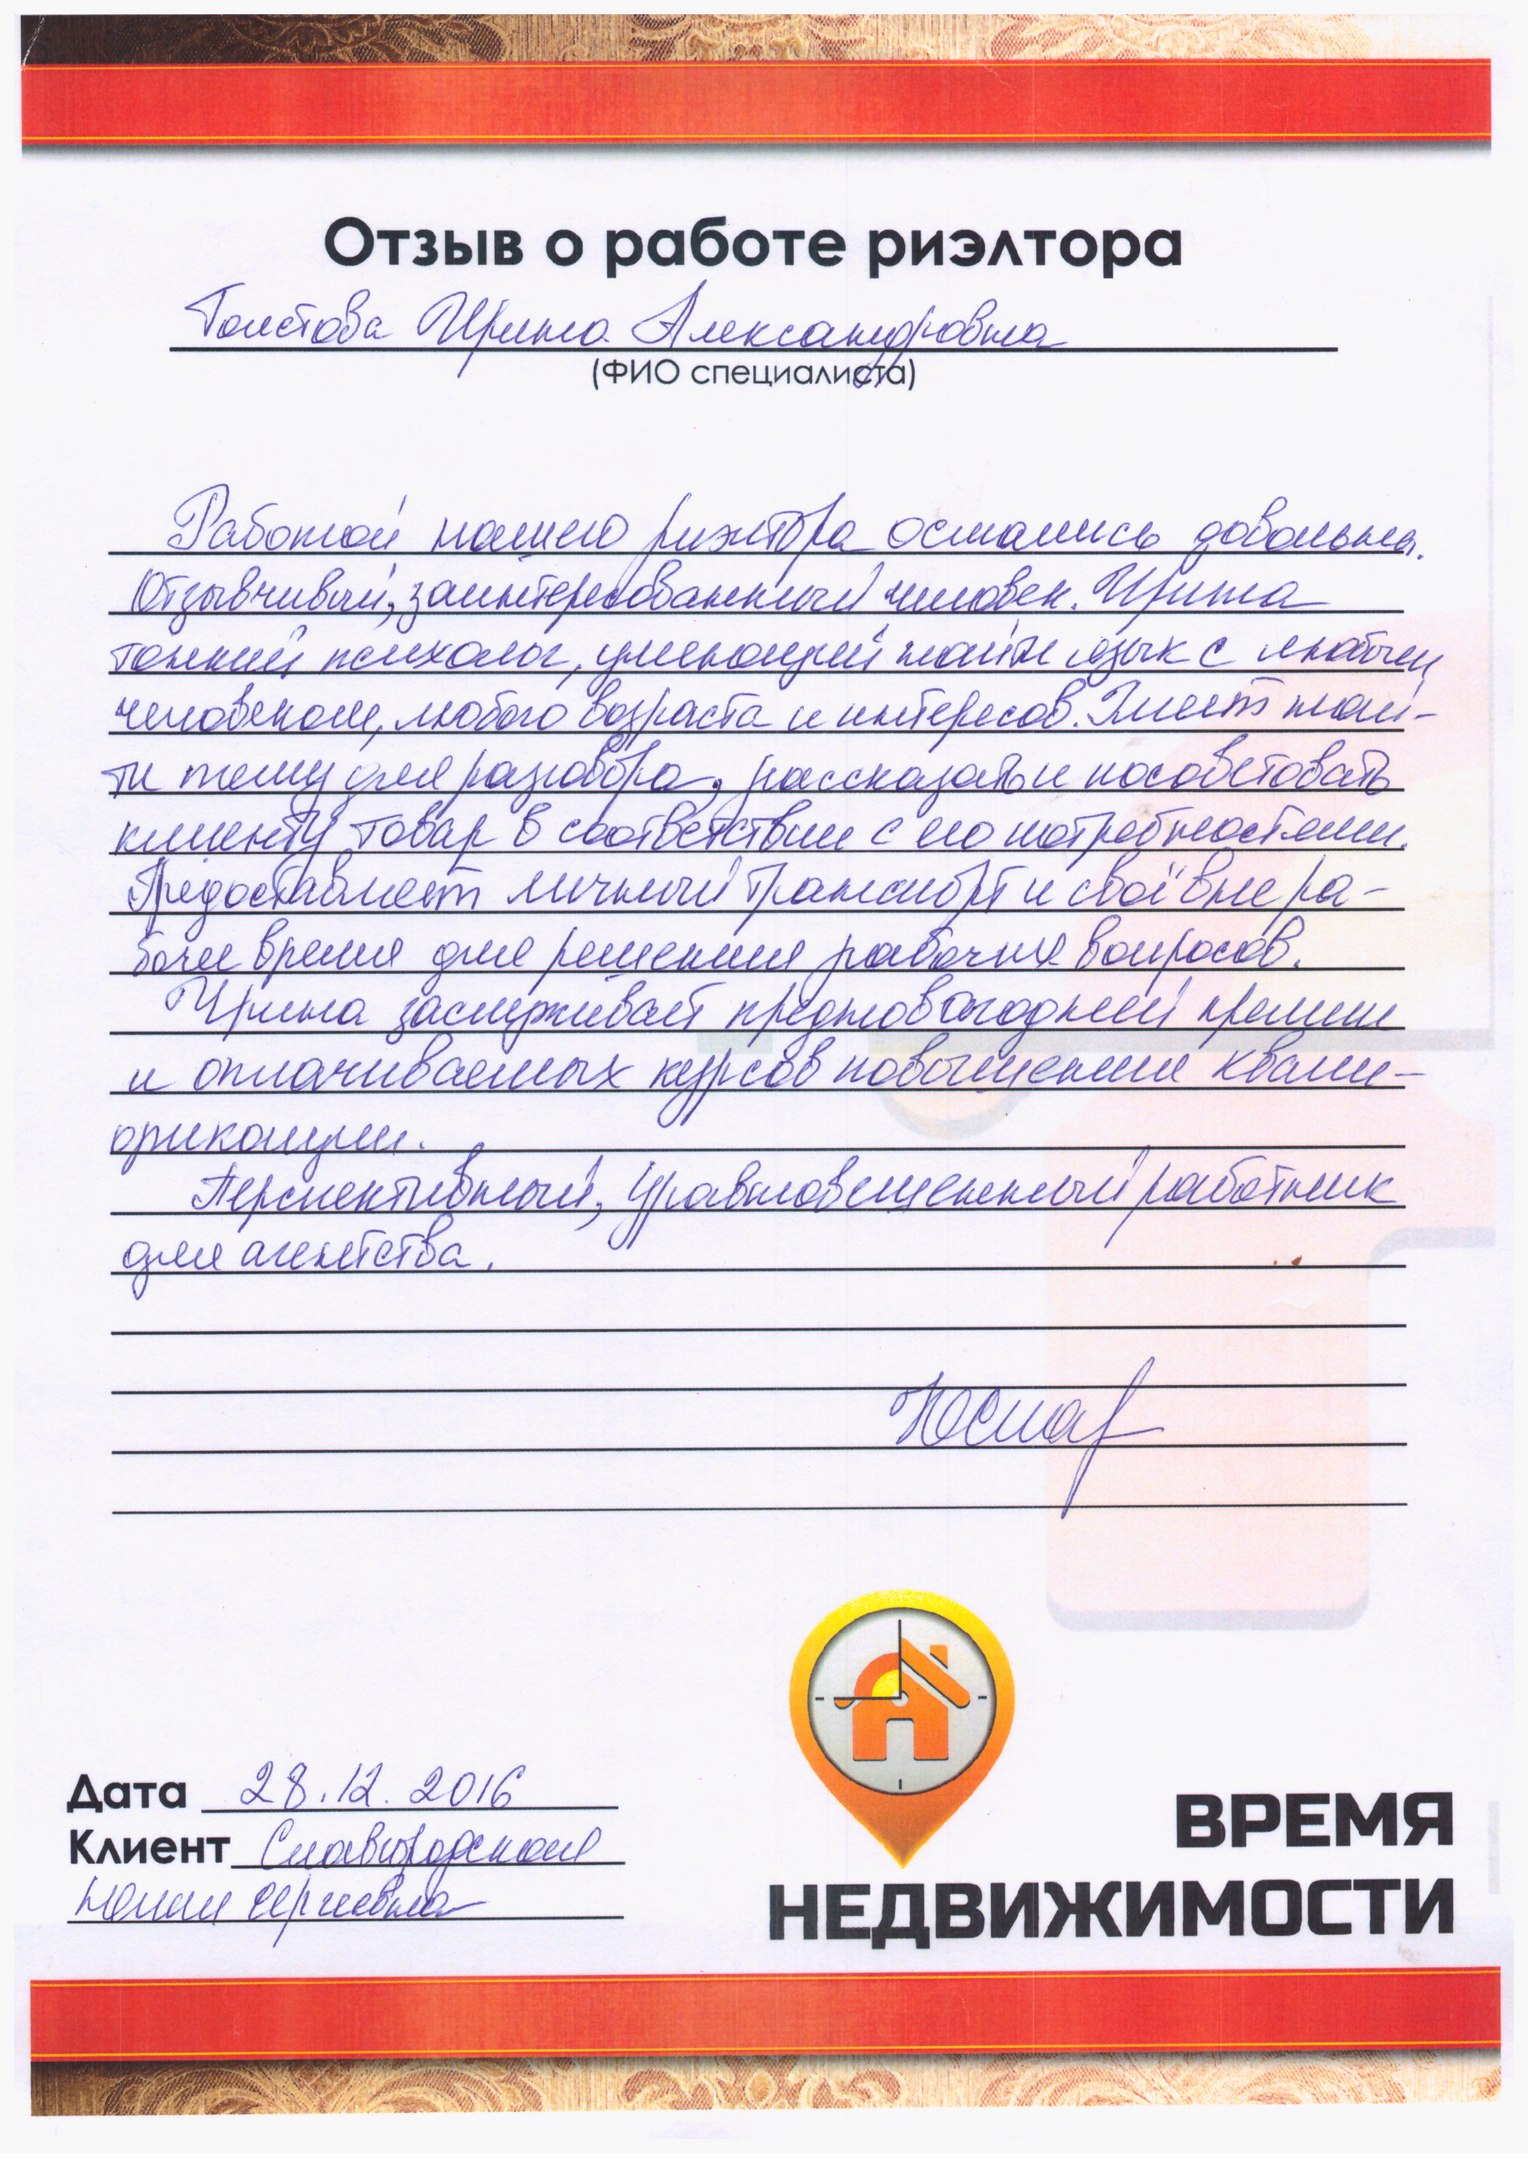 Отзыв о работе риэлтора
Толстова Ирина Александровна
(ФИО специалиста)
Работой нашего риэлтора остались довольны.
Отзывчивый, заинтересованный человек. Ирина
тонкий психолог, умеющий найти язык с любым
человеком, любого возраста и интересов. Умеет най-
ти тему для разговора, рассказать и посоветовать
клиенту товар в соответствии с его потребностями.
Предоставляет личный транспорт и своё вне ра-
бочее время для решения рабочих вопросов.
Ирина заслуживает предновогодней премии
и оплачиваемых курсов повышения квали-
фикации.
Перспективный, уравновешенный работник
для агентства.
Дата 28.12.2016
Клиент Славгородская
Юлия Сергеевна
ВРЕМЯ
НЕДВИЖИМОСТИ